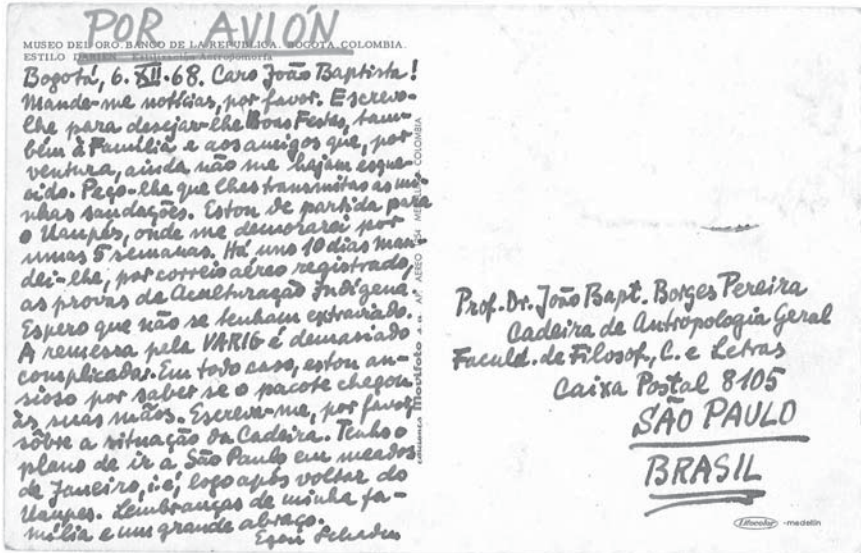 POR AVIÓN
MUSEO DEL ORO. BANCO DE LA REPUBLICA. BOGOTA, COLOMBIA.
ESTILO DARIEN Estilización Antropomorfa
Bogotá, 6.XII.68. Caro João Baptista!
Mande-me notícias, por favor. Escrevo-
lhe para desejar-lhe Boas Festas, tam-
bém à Família e aos amigos que, por
ventura, ainda não me hajam esque-
cido. Peço-lhe que lhes transmita as mi-
nhas saudações. Estou de partida para
o Uaupés, onde me demorarei por
umas 5 semanas. Há uns 10 dias man-
dei-lhe, por correio aéreo registrado,
as provas da Aculturação Indígena.
Espero que não se tenham extraviado.
A remessa pela VARIG é demasiado
complicada. Em todo caso, estou an-
sioso por saber se o pacote chegou
às suas mãos. Escreva-me, por favor,
sôbre a situação da Cadeira. Tenho o
plano de ir a São Paulo em meados
de Janeiro, i.é, logo após voltar do
Uaupes. Lembranças de minha fa-
mília e um grande abraço.
Egon Schaden
Movifoto s.a. AP. AEREO COLOMBIA
Prof. Dr. João Bapt. Borges Pereira
Cadeira de Antropologia Geral
Faculd. de Filosof., C. e Letras
Caixa Postal 8105
SÃO PAULO
BRASIL
-medellín